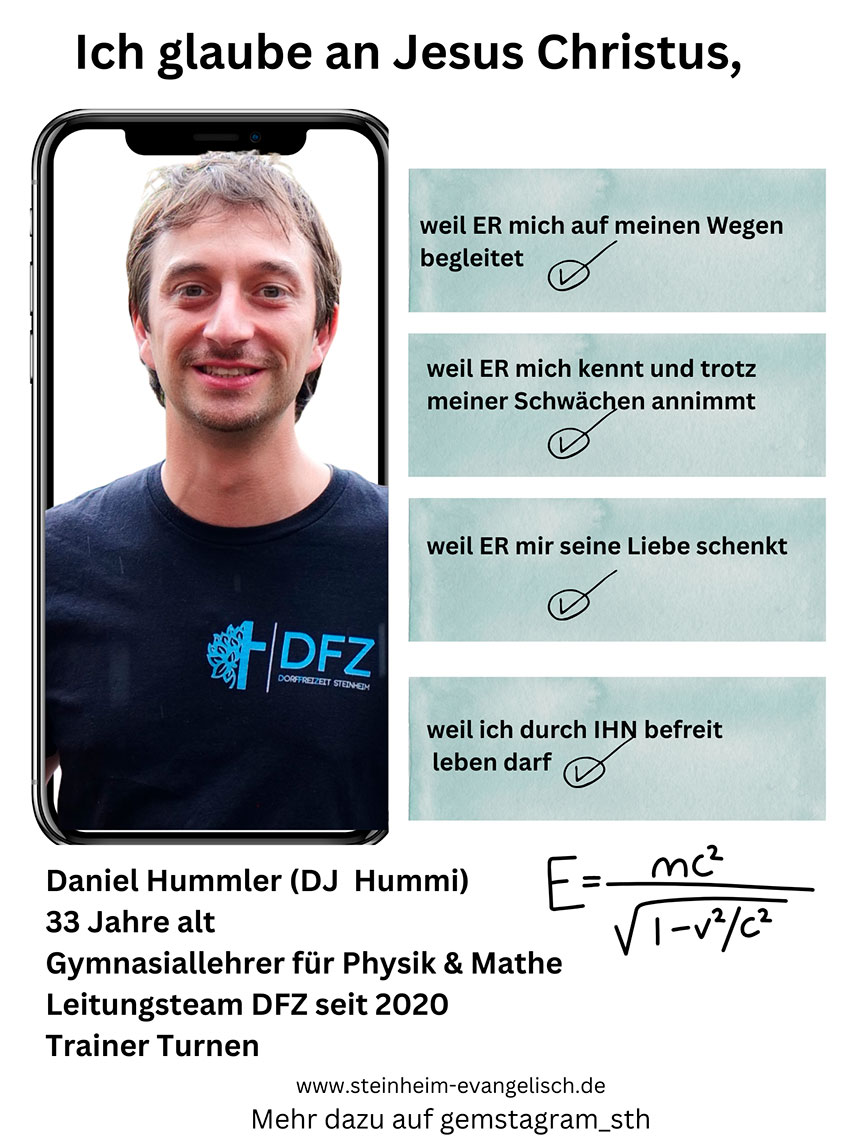 Ich glaube an Jesus Christus,
weil ER mich auf meinen Wegen
begleitet
weil ER mich kennt und trotz
meiner Schwächen annimmt
weil ER mir seine Liebe schenkt
weil ich durch IHN befreit
leben darf
DFZ
DORFFREIZEIT STEINHEIM
E = mc² / √1-v²/c²
Daniel Hummler (DJ Hummi)
33 Jahre alt
Gymnasiallehrer für Physik & Mathe
Leitungsteam DFZ seit 2020
Trainer Turnen
www.steinheim-evangelisch.de
Mehr dazu auf gemstagram_sth